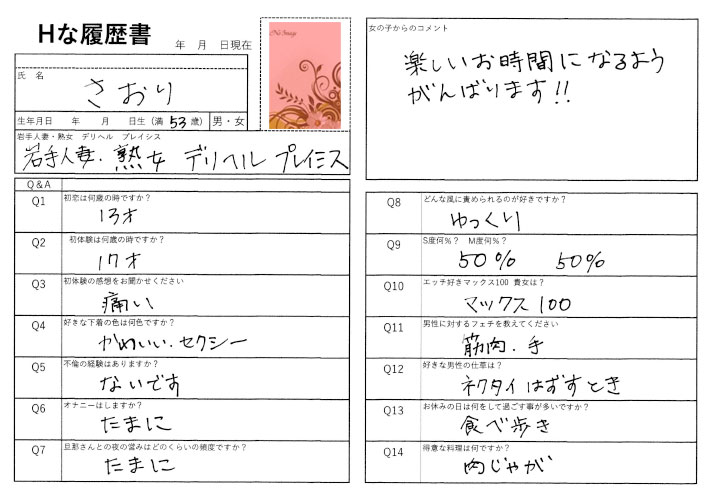 Hな履歴書
年 月 日現在
No Image
氏 名
さおり
生年月日 年 月 日生 (満 53 歳) 男・女
岩手人妻・熟女 デリヘル プレイシス
岩手人妻・熟女 デリヘル プレイミス
Q&A
Q1 初恋は何歳の時ですか?
13才
Q2 初体験は何歳の時ですか?
17才
Q3 初体験の感想をお聞かせください
痛い
Q4 好きな下着の色は何色ですか?
かわいい・セクシー
Q5 不倫の経験はありますか?
ないです
Q6 オナニーはしますか?
たまに
Q7 旦那さんとの夜の営みはどのくらいの頻度ですか?
たまに
女の子からのコメント
楽しいお時間になるよう
がんばります!!
Q8 どんな風に責められるのが好きですか?
ゆっくり
Q9 S度何%? M度何%?
50% 50%
Q10 エッチ好きマックス100 貴女は?
マックス100
Q11 男性に対するフェチを教えてください
筋肉・手
Q12 好きな男性の仕草は?
ネクタイはずすとき
Q13 お休みの日は何をして過ごす事が多いですか?
食べ歩き
Q14 得意な料理は何ですか?
肉じゃが